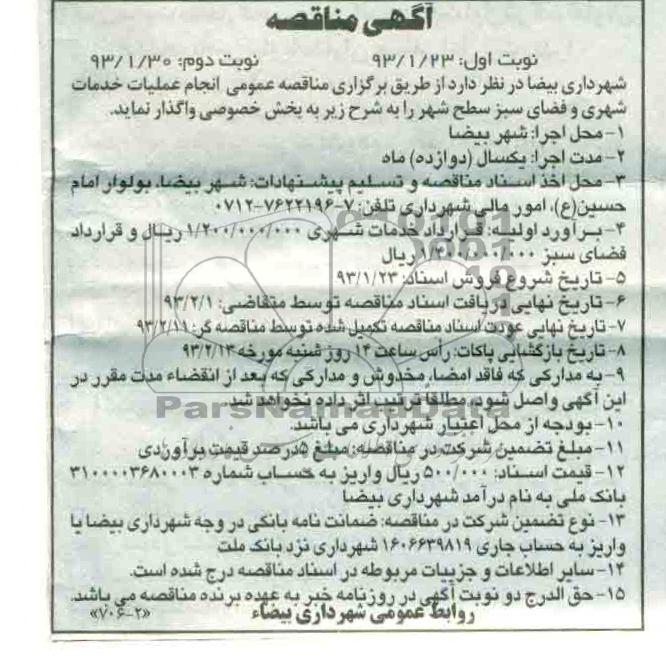 آگهی مناقصه
نوبت اول: ۹۳/۱/۲۳ نوبت دوم: ۹۳/۱/۳۰
شهرداری بیضا در نظر دارد از طریق برگزاری مناقصه عمومی انجام عملیات خدمات
شهری و فضای سبز سطح شهر را به شرح زیر به بخش خصوصی واگذار نماید.
۱- محل اجرا: شهر بیضا
۲- مدت اجرا: یکسال (دوازده) ماه
۳- محل اخذ اسناد مناقصه و تسلیم پیشنهادات: شهر بیضا، بولوار امام
حسین(ع)، امور مالی شهرداری تلفن: ۷-۷۶۲۲۱۹۶-۰۷۱۲
۴- برآورد اولیه: قرارداد خدمات شهری ۱/۲۰۰/۰۰۰/۰۰۰ ریال و قرارداد
فضای سبز ۱/۴۰۰/۰۰۰/۰۰۰ ریال
۵- تاریخ شروع فروش اسناد: ۹۳/۱/۲۳
۶- تاریخ نهایی دریافت اسناد مناقصه توسط متقاضی: ۹۳/۲/۱
۷- تاریخ نهایی عودت اسناد مناقصه تکمیل شده توسط مناقصه گر: ۹۳/۲/۱۱
۸- تاریخ بازگشایی پاکات: رأس ساعت ۱۴ روز شنبه مورخه ۹۳/۲/۱۳
۹- به مدارکی که فاقد امضا، مخدوش و مدارکی که بعد از انقضاء مدت مقرر در
این آگهی واصل شود، مطلقاً ترتیب اثر داده نخواهد شد.
۱۰- بودجه از محل اعتبار شهرداری می باشد.
۱۱- مبلغ تضمین شرکت در مناقصه: مبلغ ۵درصد قیمت برآوردی
۱۲- قیمت اسناد: ۵۰۰/۰۰۰ ریال واریز به حساب شماره ۳۱۰۰۰۰۳۶۸۰۰۰۳
بانک ملی به نام درآمد شهرداری بیضا
۱۳- نوع تضمین شرکت در مناقصه: ضمانت نامه بانکی در وجه شهرداری بیضا یا
واریز به حساب جاری ۱۶۰۶۶۳۹۸۱۹ شهرداری نزد بانک ملت
۱۴- سایر اطلاعات و جزییات مربوطه در اسناد مناقصه درج شده است.
۱۵- حق الدرج دو نوبت آگهی در روزنامه خبر به عهده برنده مناقصه می باشد.
روابط عمومی شهرداری بیضاء
«۷۰۶-۲»
ParsNamadData